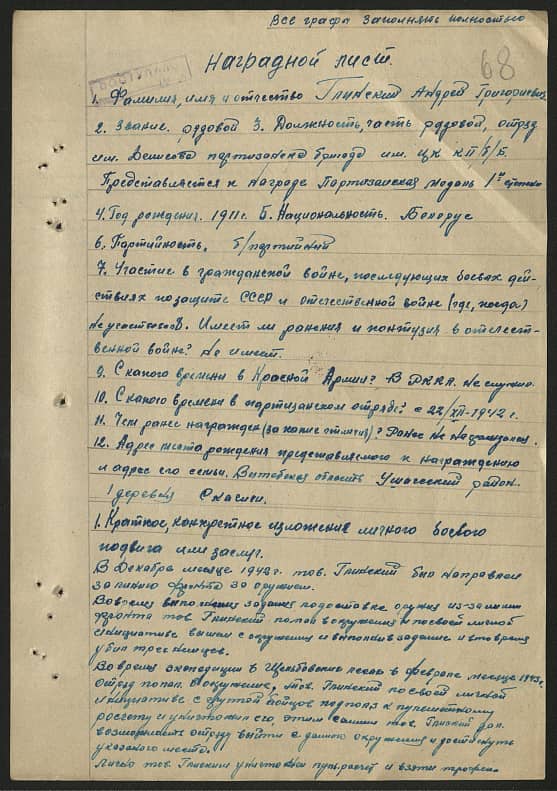 Все графы заполнять полностью
68
Наградной лист.
1. Фамилия, имя и отчество Глинский Андрей Григорьевич
2. Звание. рядовой 3. Должность, часть рядовой, отряд
им. Денисова партизанска бригада им. ЦК КП/б/Б.
Представляется к награде Партизанская медаль 1й степени
4. Год рождения. 1911 г. 5. Национальность. Белорус
6. Партийность. б/партийный
7. Участие в гражданской войне, последующих боевых дей-
ствиях по защите СССР и отечественной войне (где, когда)
Не участвовал. Имеет ли ранения и контузия в отечест-
венной войне? Не имеет.
9. С какого времени в Красной Армии? В РККА. Не служил.
10. С какого времени в партизанском отряде? с 22/XII-1942 г.
11. Чем ранее награжден (за какие отличия)? Ранее не награждался.
12. Адрес места рождения представляемого к награждению
и адрес его семьи. Витебская область Ушачский район.
деревня
1. Краткое, конкретное изложение личного боевого
подвига или заслуг.
В Декабре месяце 1942 г. тов. Глинский был направлен
за линию фронта за оружием.
Во время выполнения задания по доставке оружия из-за линии
фронта тов Глинский попал в окружение и по своей личной
инициативе вышел с окружения и выполнил задание и в то время
убил трех немцев.
Во время экспедиции в лесах в феврале месяце 1943 г.
отряд попал в окружение, тов. Глинский по своей личной
инициативе с группой бойцов подполз к пулеметному
расчету и уничтожил его, этим самым тов. Глинский дал
возможность отряду выйти с данного окружения и достигнуть
указаного места.
Лично тов. Глинским уничтожен пул. расчет и взяты трофеи.